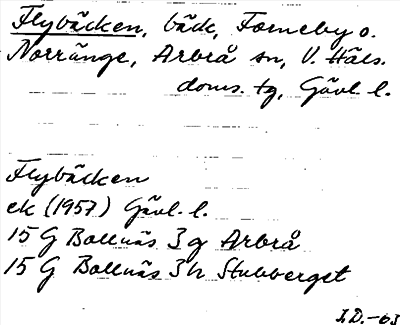 Flybäcken, bäck, Forneby o.
Norränge, Arbrå sn, V. Häls.
doms. tg, Gävl. l.
Flybäcken
ek (1957) Gävl. l.
15 G Bollnäs 3 g Arbrå
15 G Bollnäs 3 h Stubberget
I.D. -63